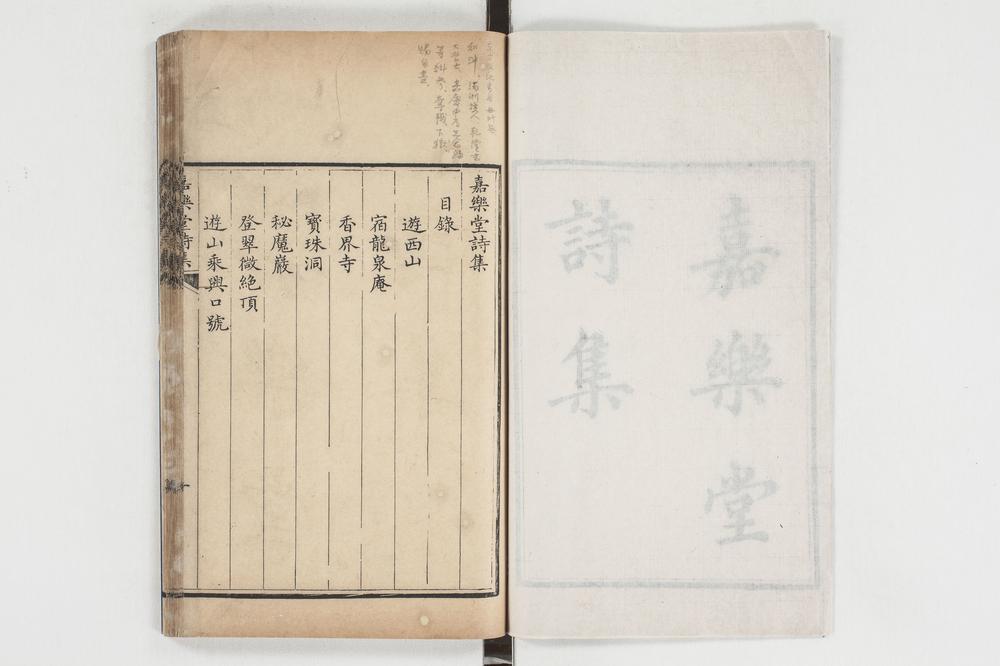 嘉樂堂
詩集
嘉樂堂詩集
目錄
遊西山
宿龍泉庵
香界寺
寶珠洞
秘魔巖
登翠微絕頂
遊山乘興口號
嘉樂堂詩集